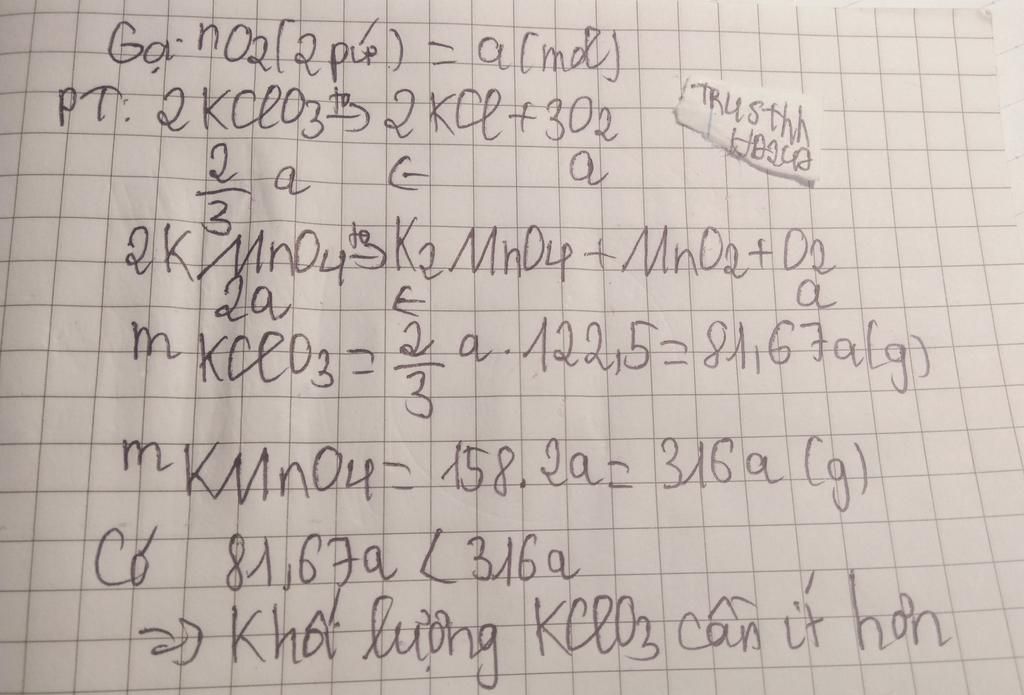 Gọi nO2(2 pứ) = a(mol)
PT: 2KClO3 to→ 2KCl + 3O2
2/3 a ← a
2KMnO4 to→ K2MnO4 + MnO2 + O2
2a ← a
mKClO3 = 2/3 a . 122,5 = 81,67a(g)
mKMnO4 = 158.2a = 316a (g)
Có 81,67a < 316a
=> Khối lượng KClO3 cần ít hơn